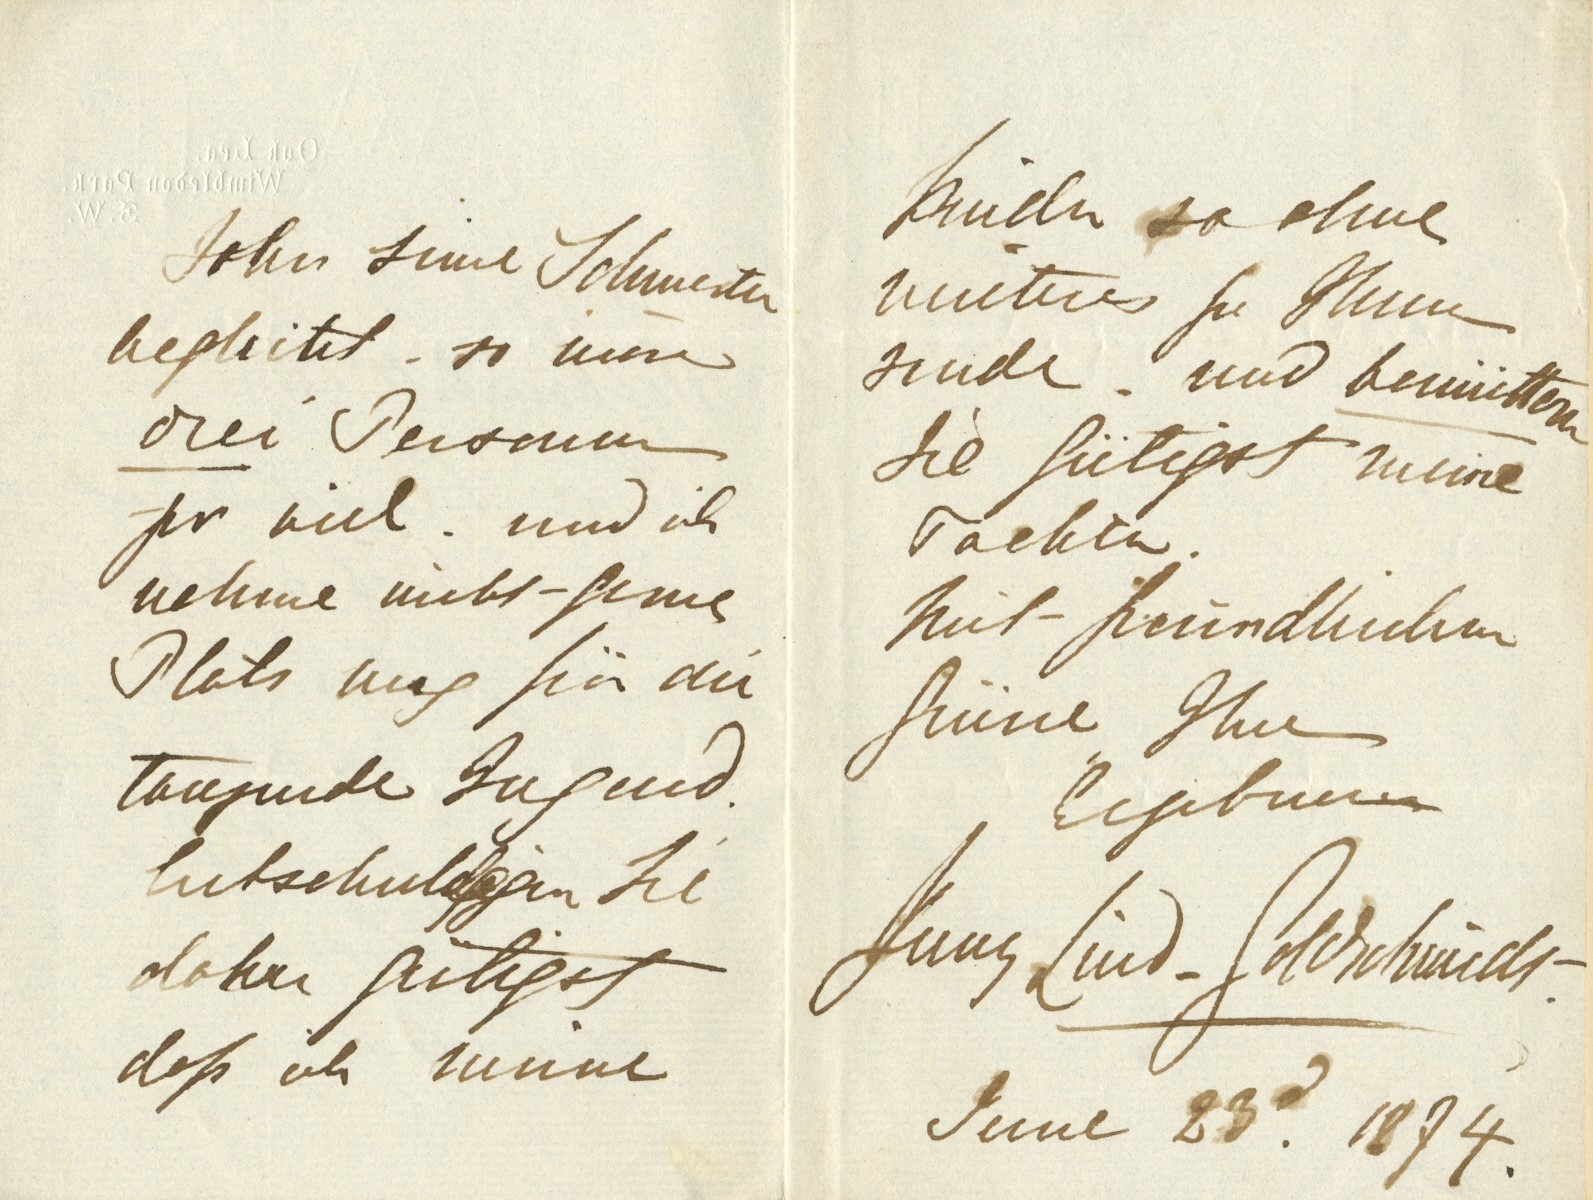 Oak Lea.
Wimbledon Park.
S.W.
Sohn seine Schwester
begleitet. so wäre
drei Personen
zu viel. und ich
nehme nicht gerne
Plats weg für die
tanzende Jugend.
Entschuldigen Sie
daher gütigst
daß ich meine
Kinder so ohne
weiteres zu Ihnen
sende. und bemüttern
Sie gütigst meine
Tochter.
Mit freundlichen
Grüsse Ihre
Ergebene
Jenny Lind-Goldschmidt.
June 23d. 1874.